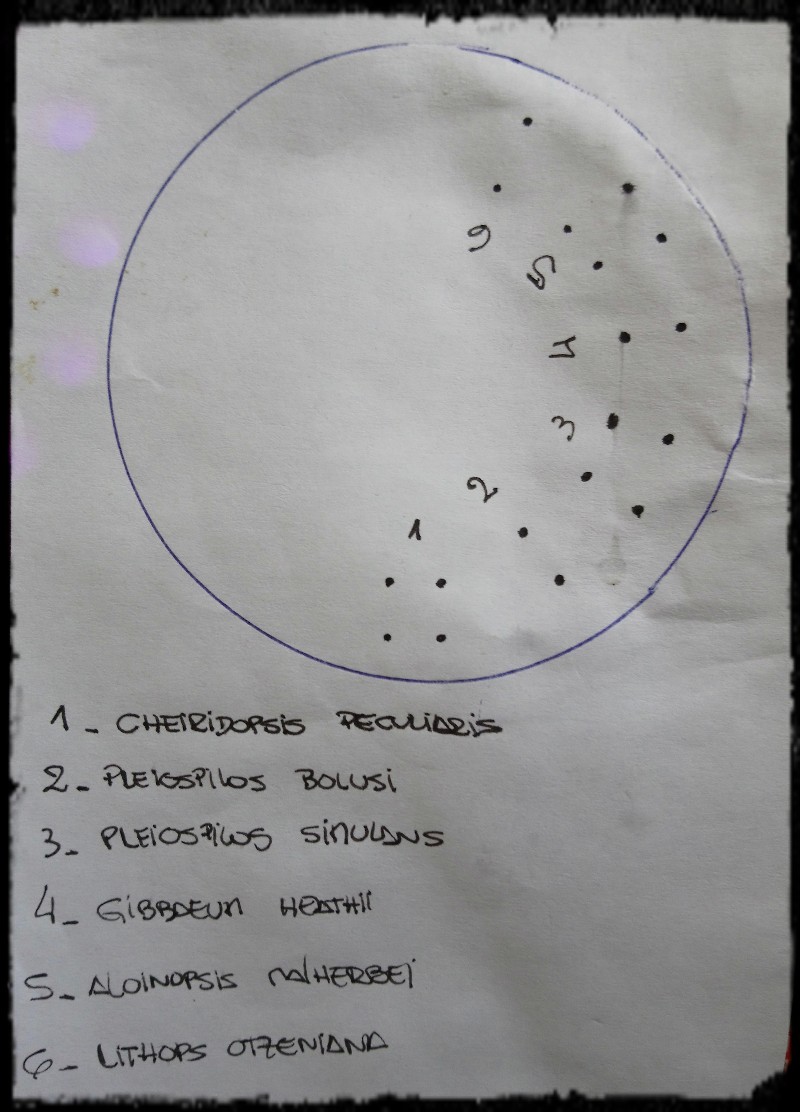 6
5
4
3
2
1
1- CHEIRIDOPSIS PECULIARIS
2- PLEIOSPILOS BOLUSI
3- PLEIOSPILOS SIMULANS
4- GIBBAEUM HEATHII
5- ALOINOPSIS MALHERBEI
6- LITHOPS OTZENIANA